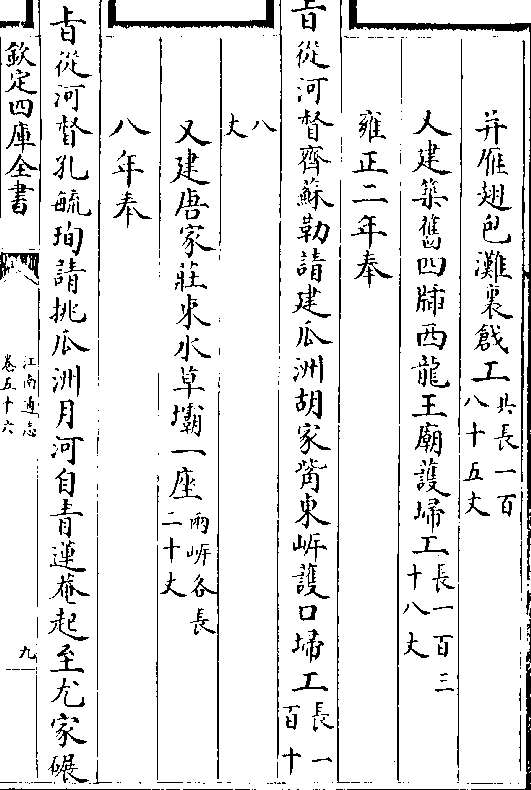 并雁翅包灘裏戧工共長一百八十五丈
又建築舊四牐西龍王廟護埽工長一百三十八丈
雍正二年奉
旨從河督齊蘇勒請建瓜洲胡家嘴東岍護口埽工長一百十
八丈
又建唐家莊束水草壩一座兩岍各長二十丈
八年奉
旨從河督孔毓珣請挑瓜洲月河自青蓮菴起至尤家碾
欽定四庫全書
江南通志
卷五十六
九